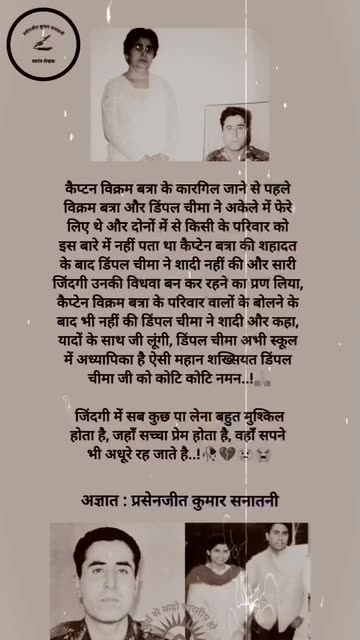 प्रसेनजीत कुमार सनातनी
स्वतंत्र लेखक
कैप्टन विक्रम बत्रा के कारगिल जाने से पहले
विक्रम बत्रा और डिंपल चीमा ने अकेले में फेरे
लिए थे और दोनों में से किसी के परिवार को
इस बारे में नहीं पता था कैप्टेन बत्रा की शहादत
के बाद डिंपल चीमा ने शादी नहीं की और सारी
जिंदगी उनकी विधवा बन कर रहने का प्रण लिया,
कैप्टेन विक्रम बत्रा के परिवार वालों के बोलने के
बाद भी नहीं की डिंपल चीमा ने शादी और कहा,
यादों के साथ जी लूंगी, डिंपल चीमा अभी स्कूल
में अध्यापिका है ऐसी महान शख्सियत डिंपल
चीमा जी को कोटि कोटि नमन..!🙏
जिंदगी में सब कुछ पा लेना बहुत मुश्किल
होता है, जहाँ सच्चा प्रेम होता है, वहाँ सपने
भी अधूरे रह जाते है..!🥀💔😢😭
अज्ञात : प्रसेनजीत कुमार सनातनी
से कहो भारतीय हो